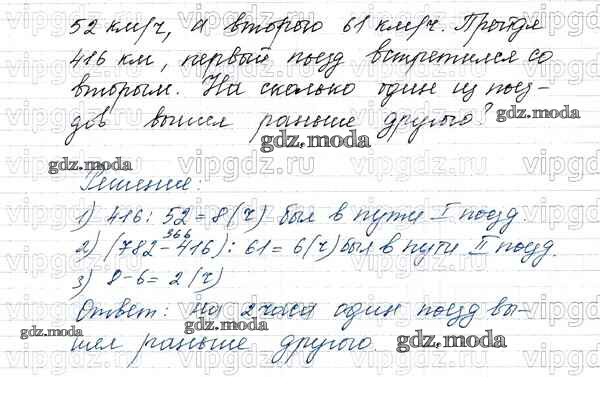 52 км/ч, а второго 61 км/ч. Пройдя
416 км, первый поезд встретился со
вторым. На сколько один из поез-
дов вышел раньше другого?
gdz.moda
gdz.moda
gdz.moda
Решение:
1) 416 : 52 = 8 (ч) был в пути I поезд.
366
2) (782 - 416) : 61 = 6 (ч) был в пути II поезд.
3) 8 - 6 = 2 (ч)
Ответ: на 2 часа один поезд вы-
шел раньше другого.
gdz.moda
gdz.moda
gdz.moda